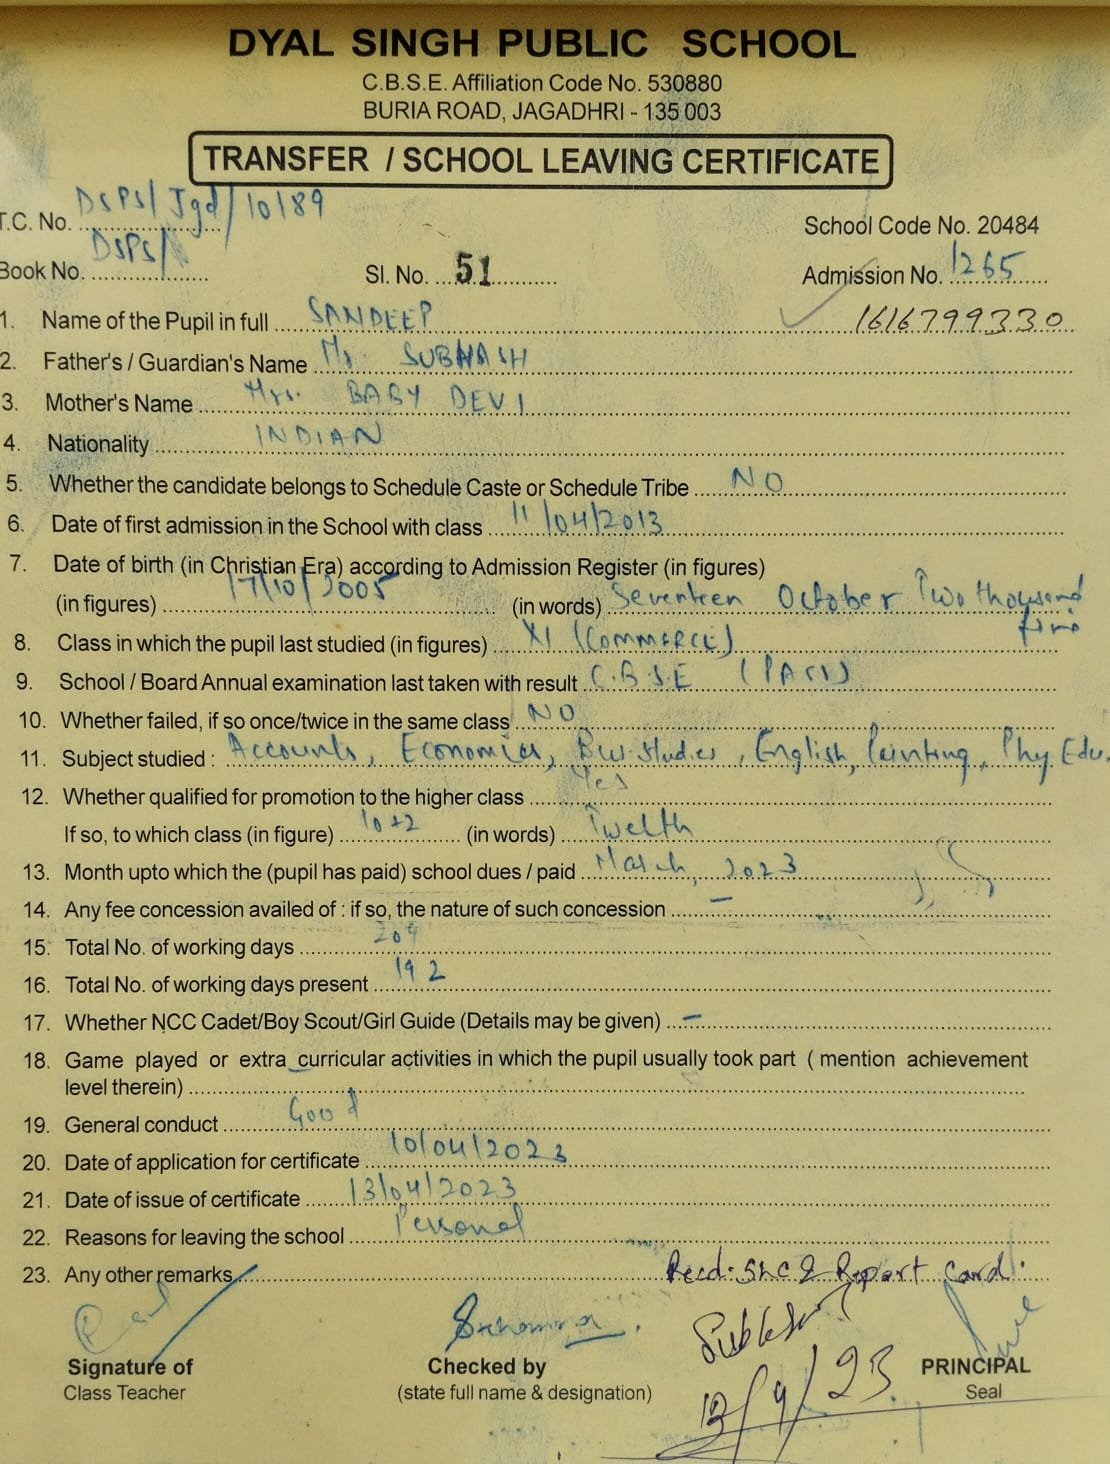 DYAL SINGH PUBLIC SCHOOL
C.B.S.E. Affiliation Code No. 530880
BURIA ROAD, JAGADHRI - 135 003
TRANSFER / SCHOOL LEAVING CERTIFICATE
T.C. No. DSPS/Jgd/10189
School Code No. 20484
Book No. DSPS/ Sl. No. 51 Admission No. 1265
1. Name of the Pupil in full SANDEEP 1616799330
2. Father's / Guardian's Name Mr. SUBHASH
3. Mother's Name Mrs. BABY DEVI
4. Nationality INDIAN
5. Whether the candidate belongs to Schedule Caste or Schedule Tribe NO
6. Date of first admission in the School with class 11/04/2013
7. Date of birth (in Christian Era) according to Admission Register (in figures)
(in figures) 17/10/2005 (in words) Seventeen October Two thousand
five
8. Class in which the pupil last studied (in figures) XI (COMMERCE)
9. School / Board Annual examination last taken with result C.B.S.E (PASS)
10. Whether failed, if so once/twice in the same class NO
11. Subject studied : Accounts, Economics, Bus. Studies, English, Painting, Phy. Edu.
12. Whether qualified for promotion to the higher class Yes
If so, to which class (in figure) 10+2 (in words) Twelth
13. Month upto which the (pupil has paid) school dues / paid March, 2023
14. Any fee concession availed of : if so, the nature of such concession –
15. Total No. of working days 209
16. Total No. of working days present 192
17. Whether NCC Cadet/Boy Scout/Girl Guide (Details may be given) –
18. Game played or extra curricular activities in which the pupil usually took part ( mention achievement
level therein)
19. General conduct Good
20. Date of application for certificate 10/04/2023
21. Date of issue of certificate 13/04/2023
22. Reasons for leaving the school Personal
23. Any other remarks Recd. SLC & Report Card.
Signature of Checked by PRINCIPAL
Class Teacher (state full name & designation) Seal